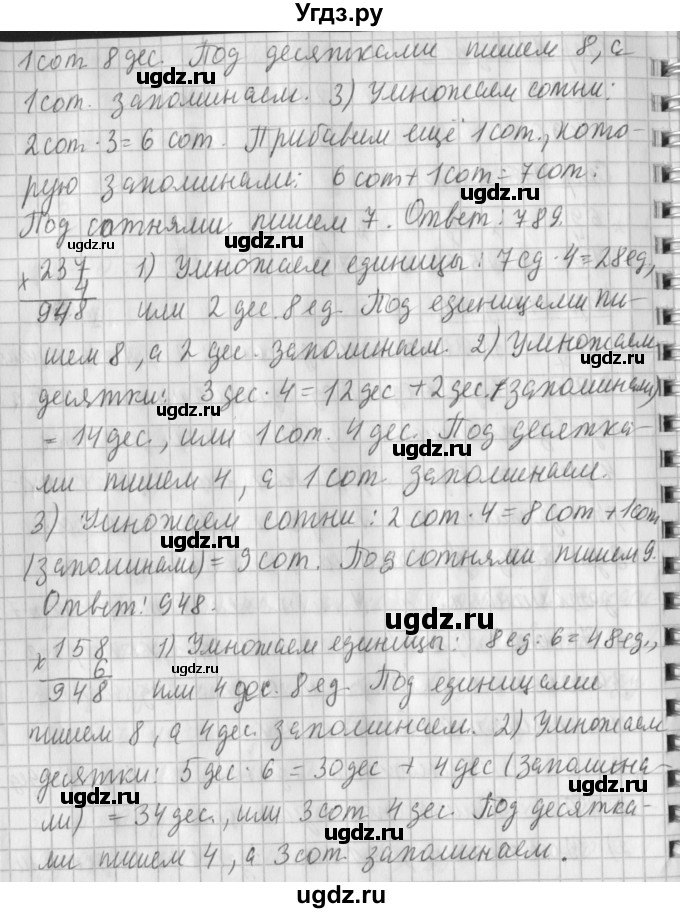 Угдз.ру
1 сот 8 дес. Под десятками пишем 8, а
1 сот. запоминаем. 3) Умножаем сотни:
2 сот · 3 = 6 сот. Прибавим ещё 1 сот., кото-
рую запоминали: 6 сот + 1 сот = 7 сот.
Под сотнями пишем 7. Ответ: 789.
× 237 1) Умножаем единицы: 7 ед · 4 = 28 ед,
4
948 или 2 дес. 8 ед. Под единицами пи-
шем 8, а 2 дес. запоминаем. 2) Умножаем
десятки: 3 дес · 4 = 12 дес + 2 дес. (запоминали)
= 14 дес., или 1 сот. 4 дес. Под десятка-
ми пишем 4, а 1 сот запоминаем.
3) Умножаем сотни: 2 сот · 4 = 8 сот + 1 сот
(запоминали) = 9 сот. Под сотнями пишем 9.
Ответ: 948.
× 158 1) Умножаем единицы: 8 ед · 6 = 48 ед.,
6
948 или 4 дес. 8 ед. Под единицами
пишем 8, а 4 дес. запоминаем. 2) Умножаем
десятки: 5 дес · 6 = 30 дес + 4 дес (запомина-
ли) = 34 дес., или 3 сот 4 дес. Под десятка-
ми пишем 4, а 3 сот запоминаем.
ugdz.ru